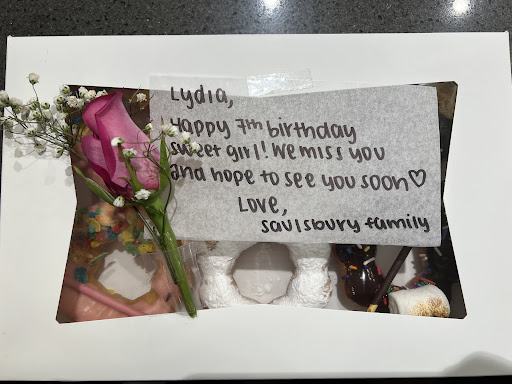 Lydia,
Happy 7th birthday
sweet girl! We miss you
and hope to see you soon♡
Love,
Saulsbury family